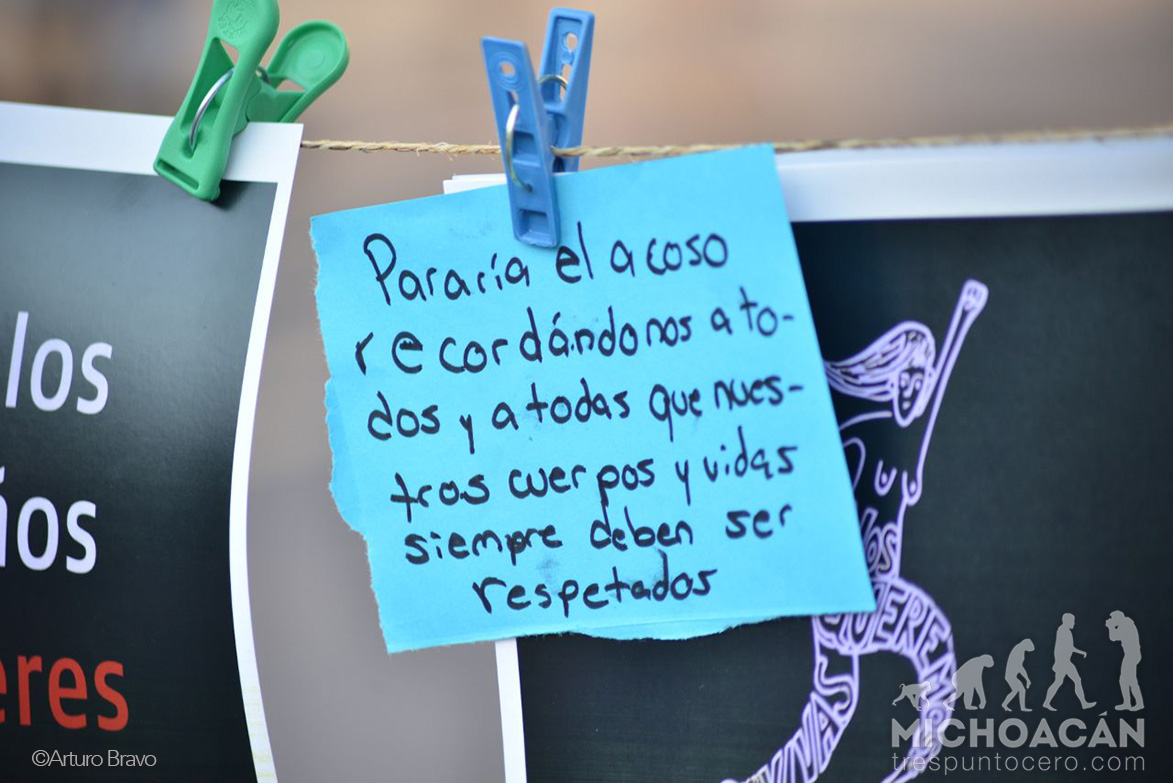 Pararía el acoso
recordándonos a to-
dos y a todas que nues-
tros cuerpos y vidas
siempre deben ser
respetados
los
los
QUEREMOS
VIVAS
©Arturo Bravo
MICHOACÁN
trespuntocero.com